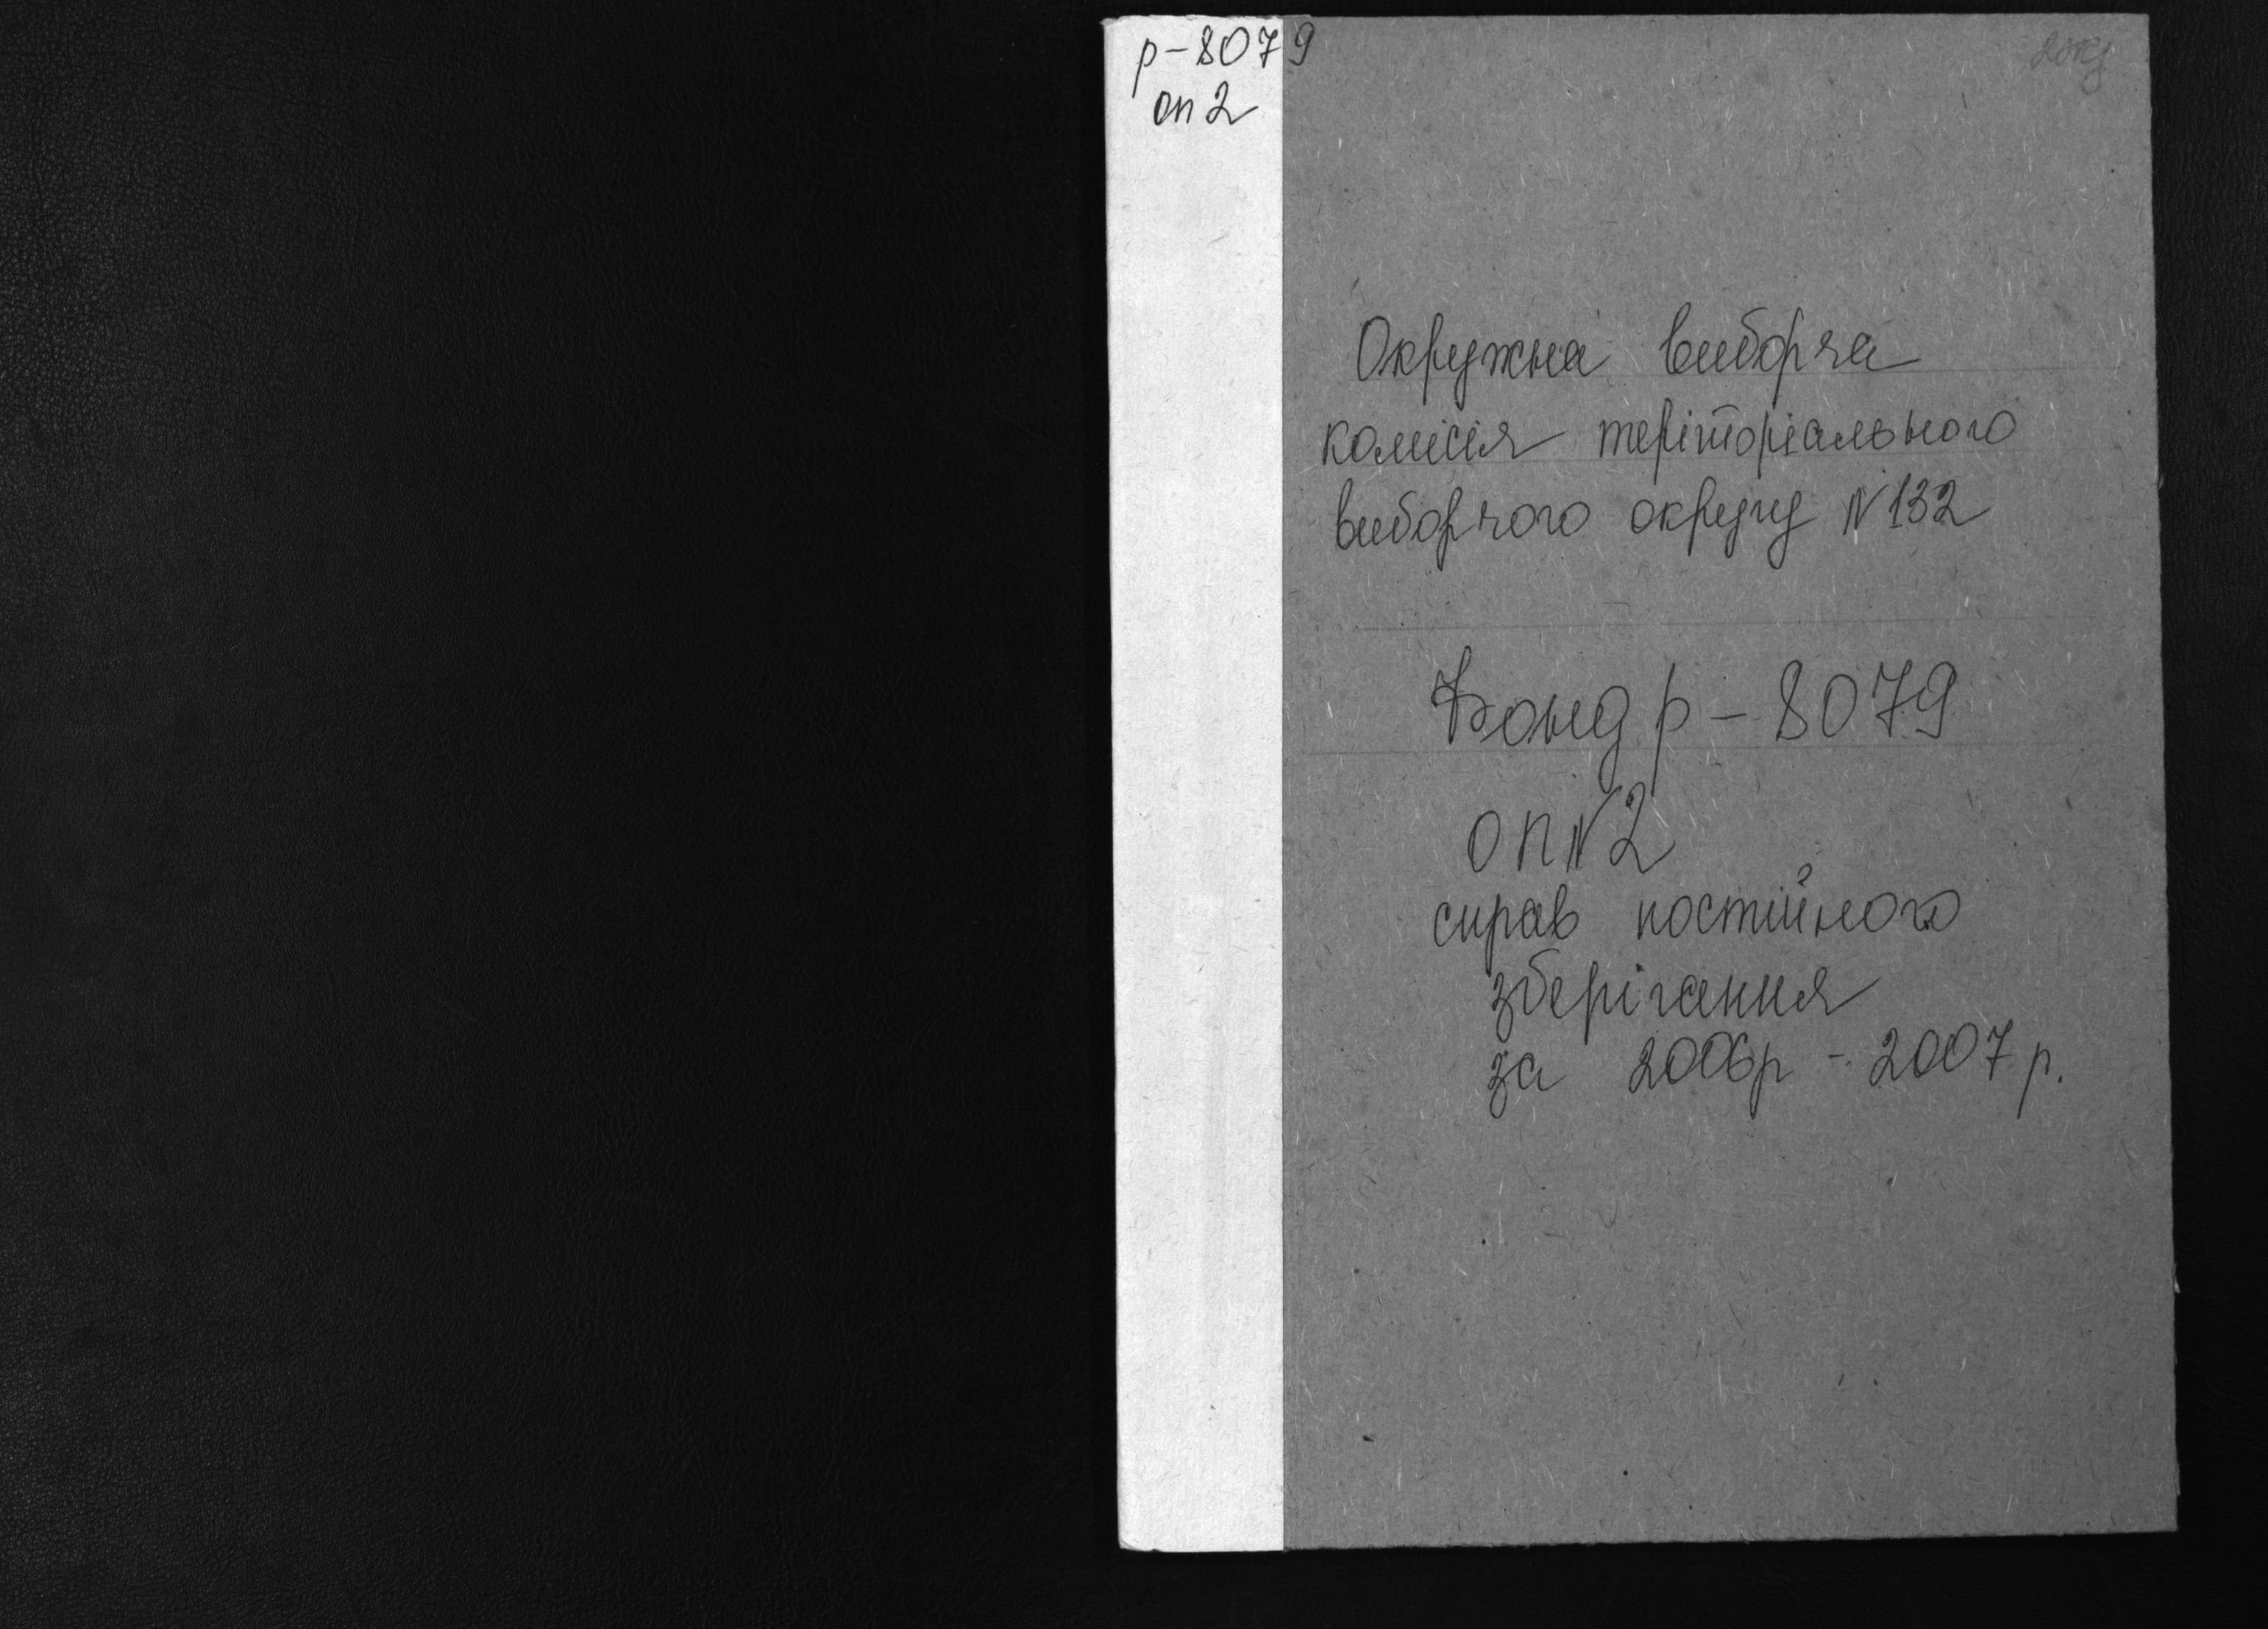 р-8079
оп 2
Окружна виборча
комісія теріторіального
виборчого округу N 132
Фонд р-8079
оп N 2
справ постійного
зберігання
за 2006р - 2007 р.